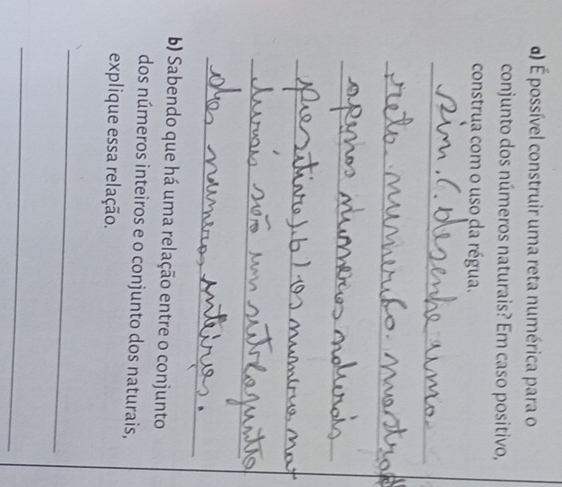 a) É possível construir uma reta numérica para o
conjunto dos números naturais? Em caso positivo,
construa com o uso da régua.
sim. (. desenhe uma
reta. numerica. mostra
apenas numeros
positivos). b) os numeros na
turais são um subconjunto
dos numeros inteiros.
b) Sabendo que há uma relação entre o conjunto
dos números inteiros e o conjunto dos naturais,
explique essa relação.